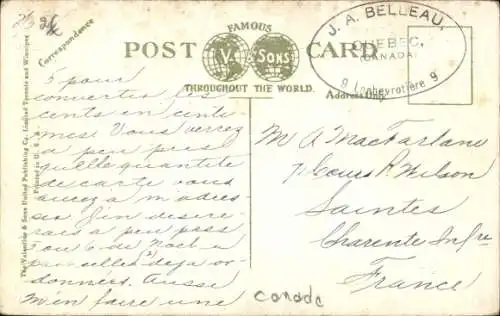 Correspondence
FAMOUS
POST CARD
V. & SONS
THROUGHOUT THE WORLD.
Address Only
J. A. BELLEAU,
QUEBEC,
(CANADA)
9 Locheyrotière 9
The Valentine & Sons United Publishing Co. Limited Toronto and Winnipeg
Printed in
5 pour
convertir les
cents en centi-
mes. Vous verrez
a peu près
quelle quantité
de carte vous
aurez a m'adres-
ser. J'en désire-
rais a peu près
5 ou 6 de Noël
pareilles déjà or-
données. Aussi
m'en faire une
M A MacFarlane
71 Cours R. Wilson
Saintes
Charente Infre
France
Canada